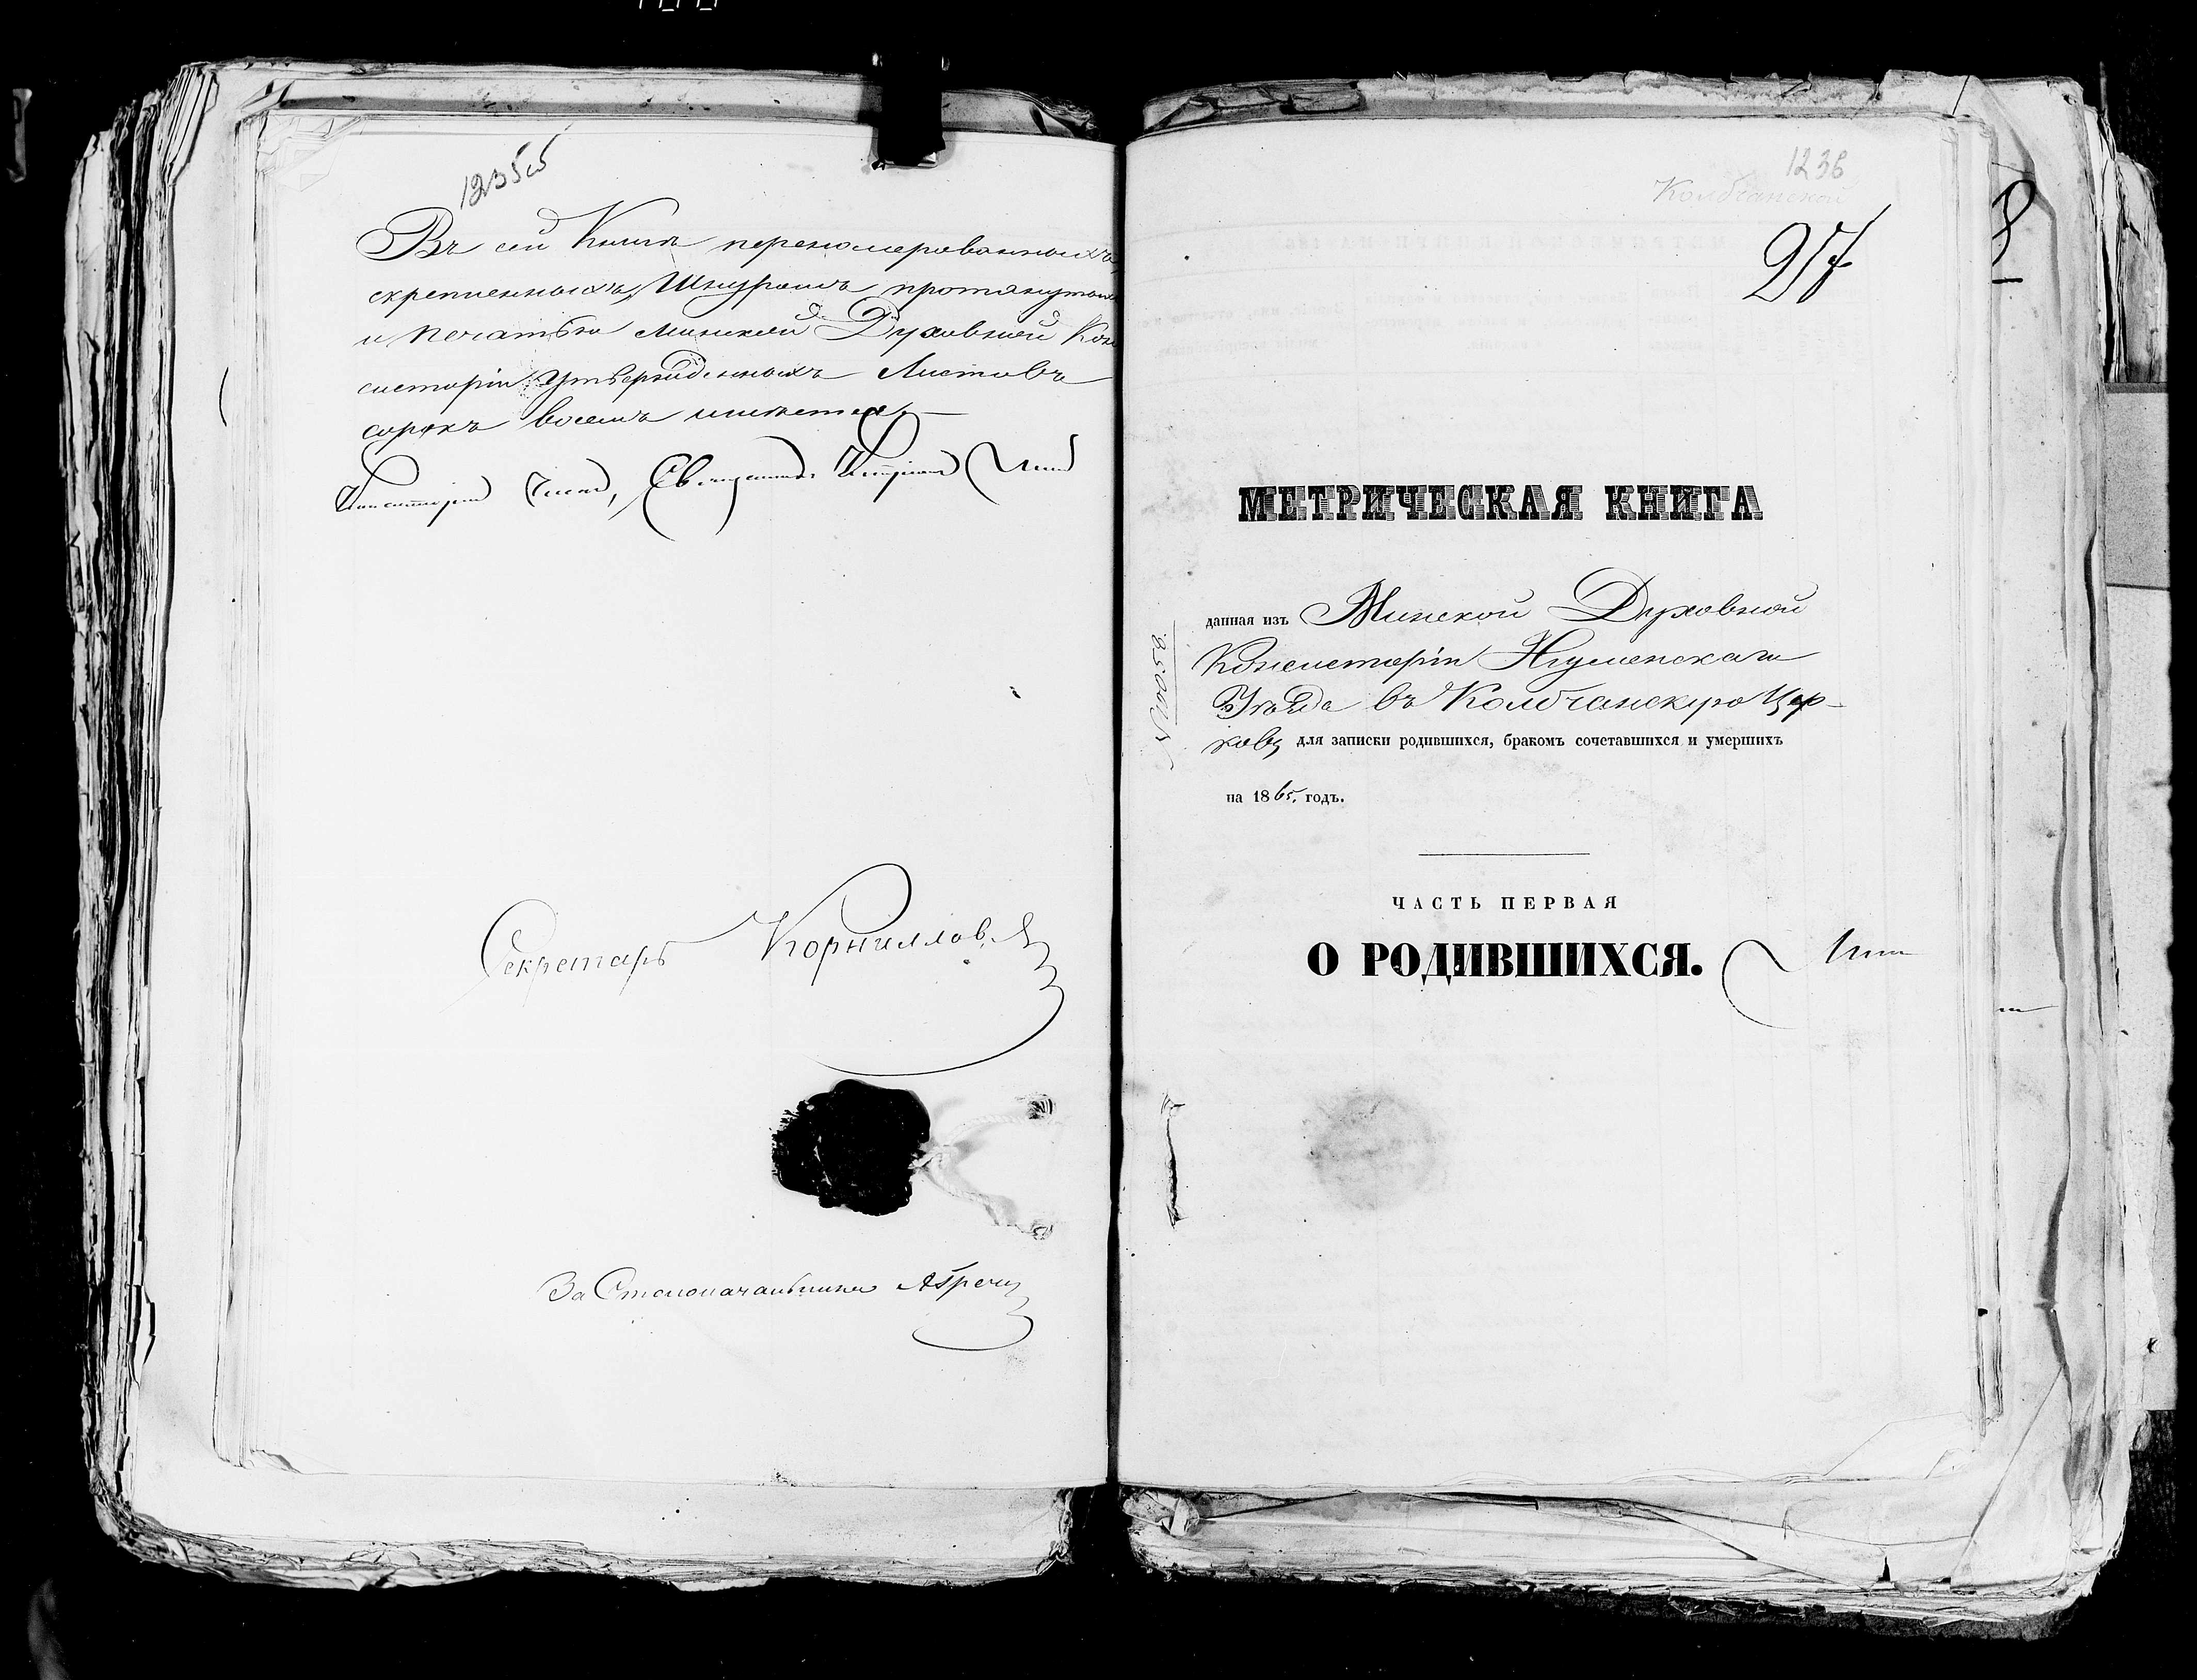 1235 об
Въ сей Книгѣ перенумерованныхъ,
скрепленныхъ, Шнуромъ протянутых
и печатью Минской Духовной Кон
систоріи Утвержденныхъ Листовъ
сорокъ восемь имѣется.—
Консисторіи Членъ, Священникъ
Секретарь Корнилловъ
За Столоначальника
1236
Колбчанской
27
МЕТРИЧЕСКАЯ КНИГА
данная изъ Минской Духовной
Консисторіи Игуменскаго
Уѣзда въ Колбчанскую Цер-
ковь для записки родившихся, бракомъ сочетавшихся и умершихъ
на 1865. годъ.
ЧАСТЬ ПЕРВАЯ
О РОДИВШИХСЯ.